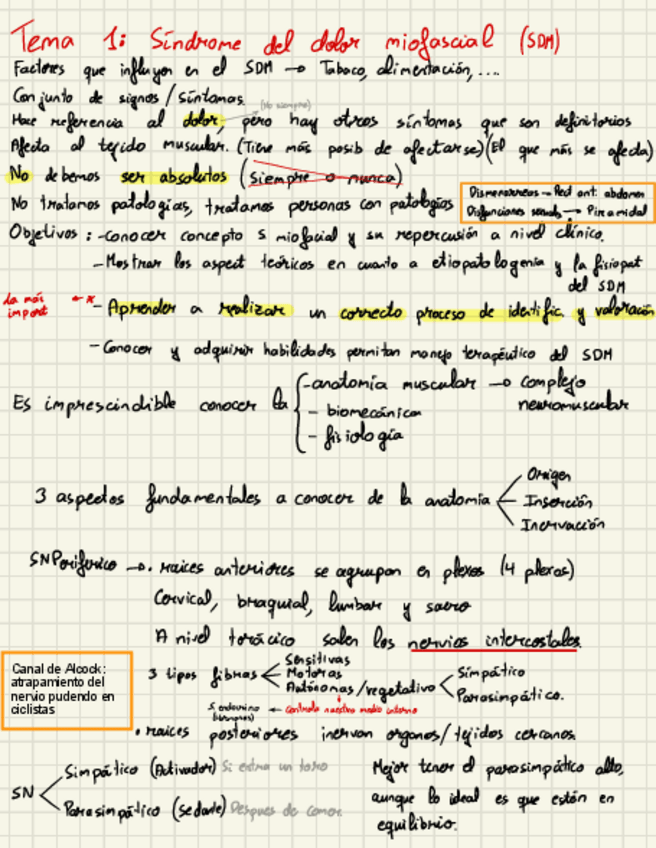 Tema 1: Síndrome del dolor miofascial (SDM)
Factores que influyen en el SDM → Tabaco, alimentación, ....
Conjunto de signos / síntomas.
(No siempre)
Hace referencia al dolor, pero hay otros síntomas que son definitorios
Afecta al tejido muscular. (Tiene más posib de afectarse) (El que más se afecta)
No debemos ser absolutos (Siempre o nunca)
No tratamos patologías, tratamos personas con patologías
Dismenorreas → Rect ant. abdomen
Disfunciones sexuals → Piramidal
Objetivos: - Conocer concepto s miofacial y su repercusión a nivel clínico.
- Mostrar los aspect teóricos en cuanto a etiopatologenia y la fisiopat
del SDM
La más import ← * - Aprender a realizar un correcto proceso de identific. y valoración
- Conocer y adquirir habilidades permitan manejo terapéutico del SDM
Es imprescindible conocer la { - anatomía muscular → complejo neuromuscular
- biomecánica
- fisiología
3 aspectos fundamentales a conocer de la anatomía < Origen
Inserción
Inervación
SNPeriferico → . raices anteriores se agrupan en plexos (4 plexos)
Cervical, braquial, lumbar y sacro
A nivel torácico salen los nervios intercostales.
Canal de Alcock:
atrapamiento del
nervio pudendo en
ciclistas
3 tipos fibras < Sensitivas
Motoras
Autónomas / vegetativo < Simpático
Parasimpático.
S. endocrino ← controla nuestro medio interno
(hormonas)
. raices posteriores inervan organos / tejidos cercanos.
SN < Simpático (Activador) Si entra un toro
Parasimpático (sedante) Despues de comer.
Mejor tener el parasimpático alto,
aunque lo ideal es que estén en
equilibrio.